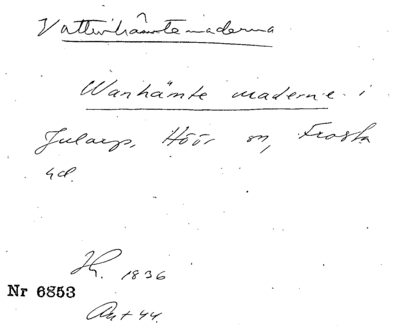 Vattenhämtemaderna
Wanhämte maderne i
Jularp, Höör sn, Frosta
hd.
Jh. 1836
Nr 6853
Ant 44.